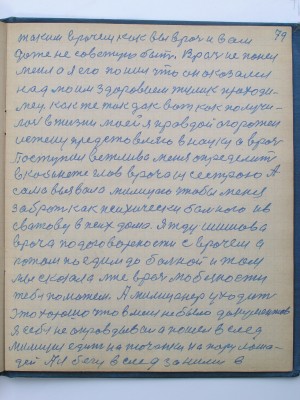 79
таким врачем как вы врач и вам
даже не советую быть. Врач не понял
меня а я его понил что он оказался
над моим здоровием жулик проходи-
мец как же так дак вот как получи-
лось в жизни моей я правдой огорожен
истену представляю в науку а врач
поступил ветлива меня определить
в кабинете глов врача и сестрою А
сама вызвала милицию чтобы меня
забрать как психически больного и в
в псих дома. Я жду
врача подоговорости с врачем а
потом поедим до больной и там
мы сказала уже врач мобпности
тебя поможем. А милицанер уходить
это хорошо что в меня не было документов
я себя не оправдывал а пошел в след
милиции едить на тачанки на пару лоша-
дей А я бегу в след за ними в